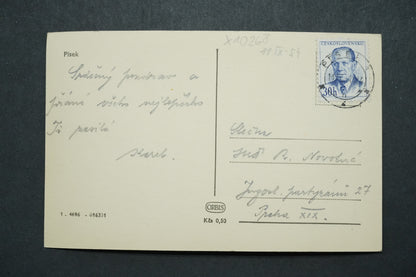 Písek
Srdečný pozdrav a
přání všeho nejlepšího
Ti posílá
Karel.
1 - 4696 -
ORBIS
Kčs 0,50
ČESKOSLOVENSKO
30 h
Slečna
R. Novotná
Jugosl. partyzánů 27
Praha XIX.